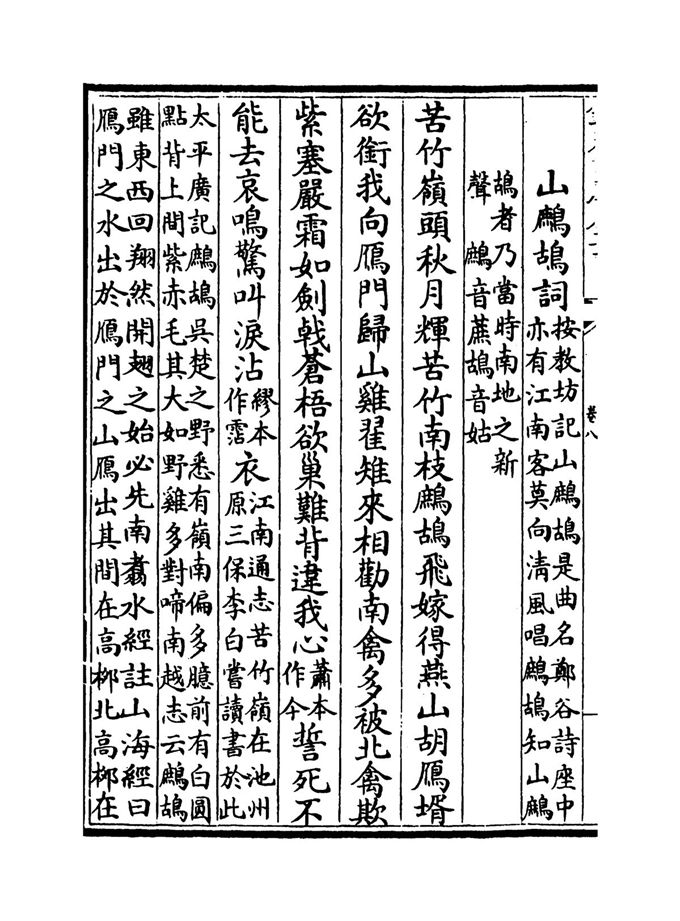 山鷓鴣詞按教坊記山鷓鴣是曲名鄭谷詩座中
亦有江南客莫向清風唱鷓鴣知山鷓
鴣者乃當時南地之新
聲 鷓音蔗鴣音姑
苦竹嶺頭秋月輝苦竹南枝鷓鴣飛嫁得燕山胡鴈壻
欲銜我向鴈門歸山雞翟雉來相勸南禽多被北禽欺
紫塞嚴霜如劍戟蒼梧欲巢難背違我心蕭本作今誓死不
能去哀鳴驚叫淚沾繆本作霑衣江南通志苦竹嶺在池州
原三保李白嘗讀書於此
太平廣記鷓鴣吳楚之野悉有嶺南偏多臆前有白圓
點背上間紫赤毛其大如野雞多對啼南越志云鷓鴣
雖東西回翔然開翅之始必先南翥水經註山海經曰
鴈門之水出於鴈門之山鴈出其間在高栁北高栁在
卷八